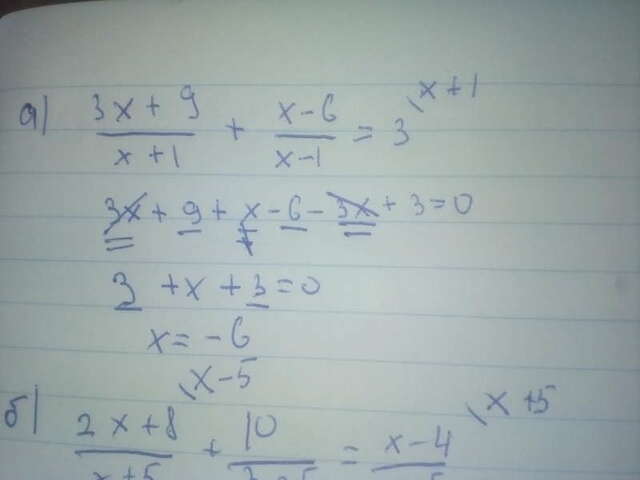 а) (3x + 9)/(x + 1) + (x - 6)/(x - 1) = 3 \x + 1
3x + 9 + x - 6 - 3x + 3 = 0
3 + x + 3 = 0
x = -6
б) (2x + 8)/(x + 5) \x - 5 + 10 = (x - 4) \x + 5